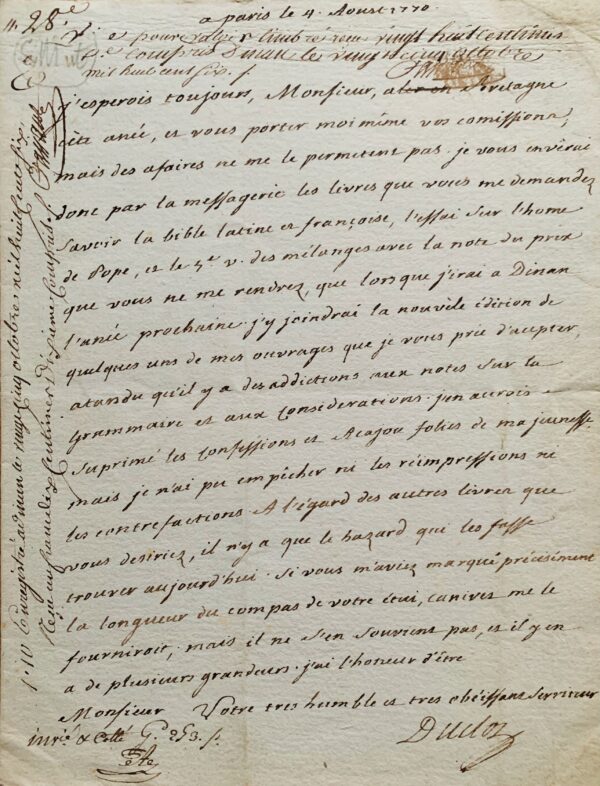 a paris le 4. Aoust 1770.
11. 28e
vingt huit centimes
compris Dinan le vingt cinq octobre
mil huit cent six
j'esperois toujours, Monsieur, aler en Bretagne
cète anée, et vous porter moi même vos comissions,
mais des afaires ne me le permetent pas. je vous envèrai
donc par la messagerie les livres que vous me demandez
savoir la bible latine et françoise, l'essai sur l'home
de Pope, et le 5e v. des mélanges avec la note du prix
que vous ne me rendrez, que lorsque j'irai a Dinan
l'anée prochaine. j'y joindrai la nouvèle édition de
quelques uns de mes ouvrages que je vous prie d'acepter,
atandu qu'il y a des addictions aux notes sur la
grammaire et aux considerations. j'en aurois
suprimé les confessions et Acajou folies de ma jeunesse
mais je n'ai pu empêcher ni les réimpressions ni
les contrefactions. A l'égard des autres livres que
vous desiriez, il n'y a que le hazard qui les fasse
trouver aujourd'hui. Si vous m'aviez marqué précisément
la longueur du compas de votre étui, canivet me le
fourniroit, mais il ne s'en souvient pas, et il y en
a de plusieurs grandeurs. j'ai l'honeur d'être
Monsieur Votre tres humble et tres obéissant serviteur
Duclos
Enregistré a dinan le vingt cinq octobre mil huit cent six
Reçu un franc dix centimes